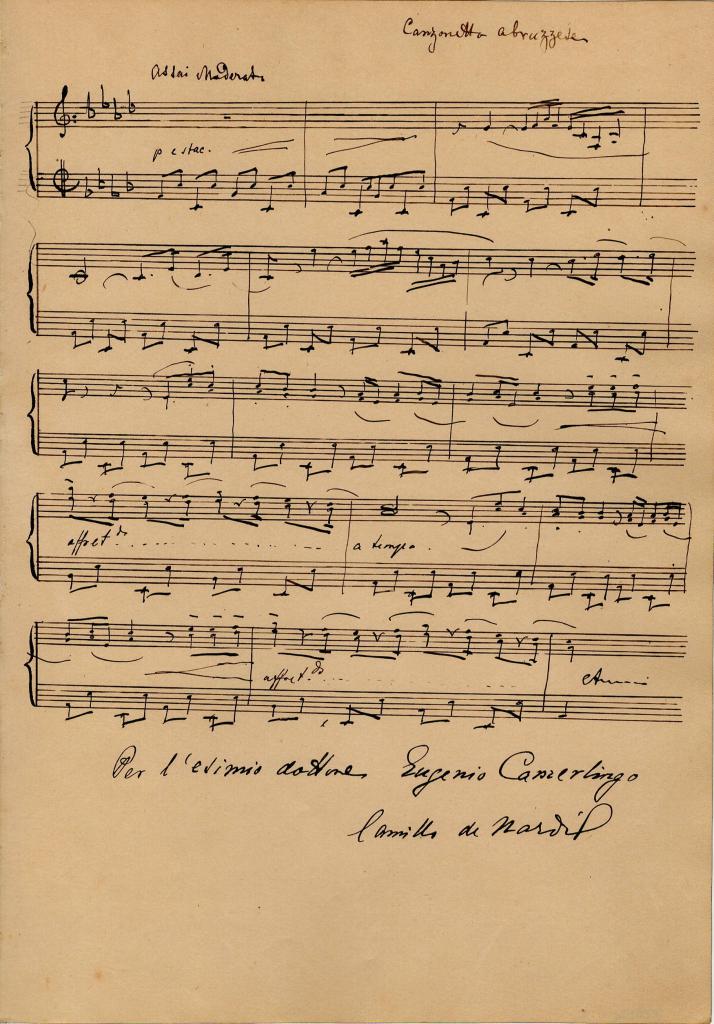 Canzonetta abruzzese
Assai Moderato
p e stac.
affret.do
a tempo.
affret.do
Per l'esimio dottore Eugenio Camerlingo
Camillo de Nardis